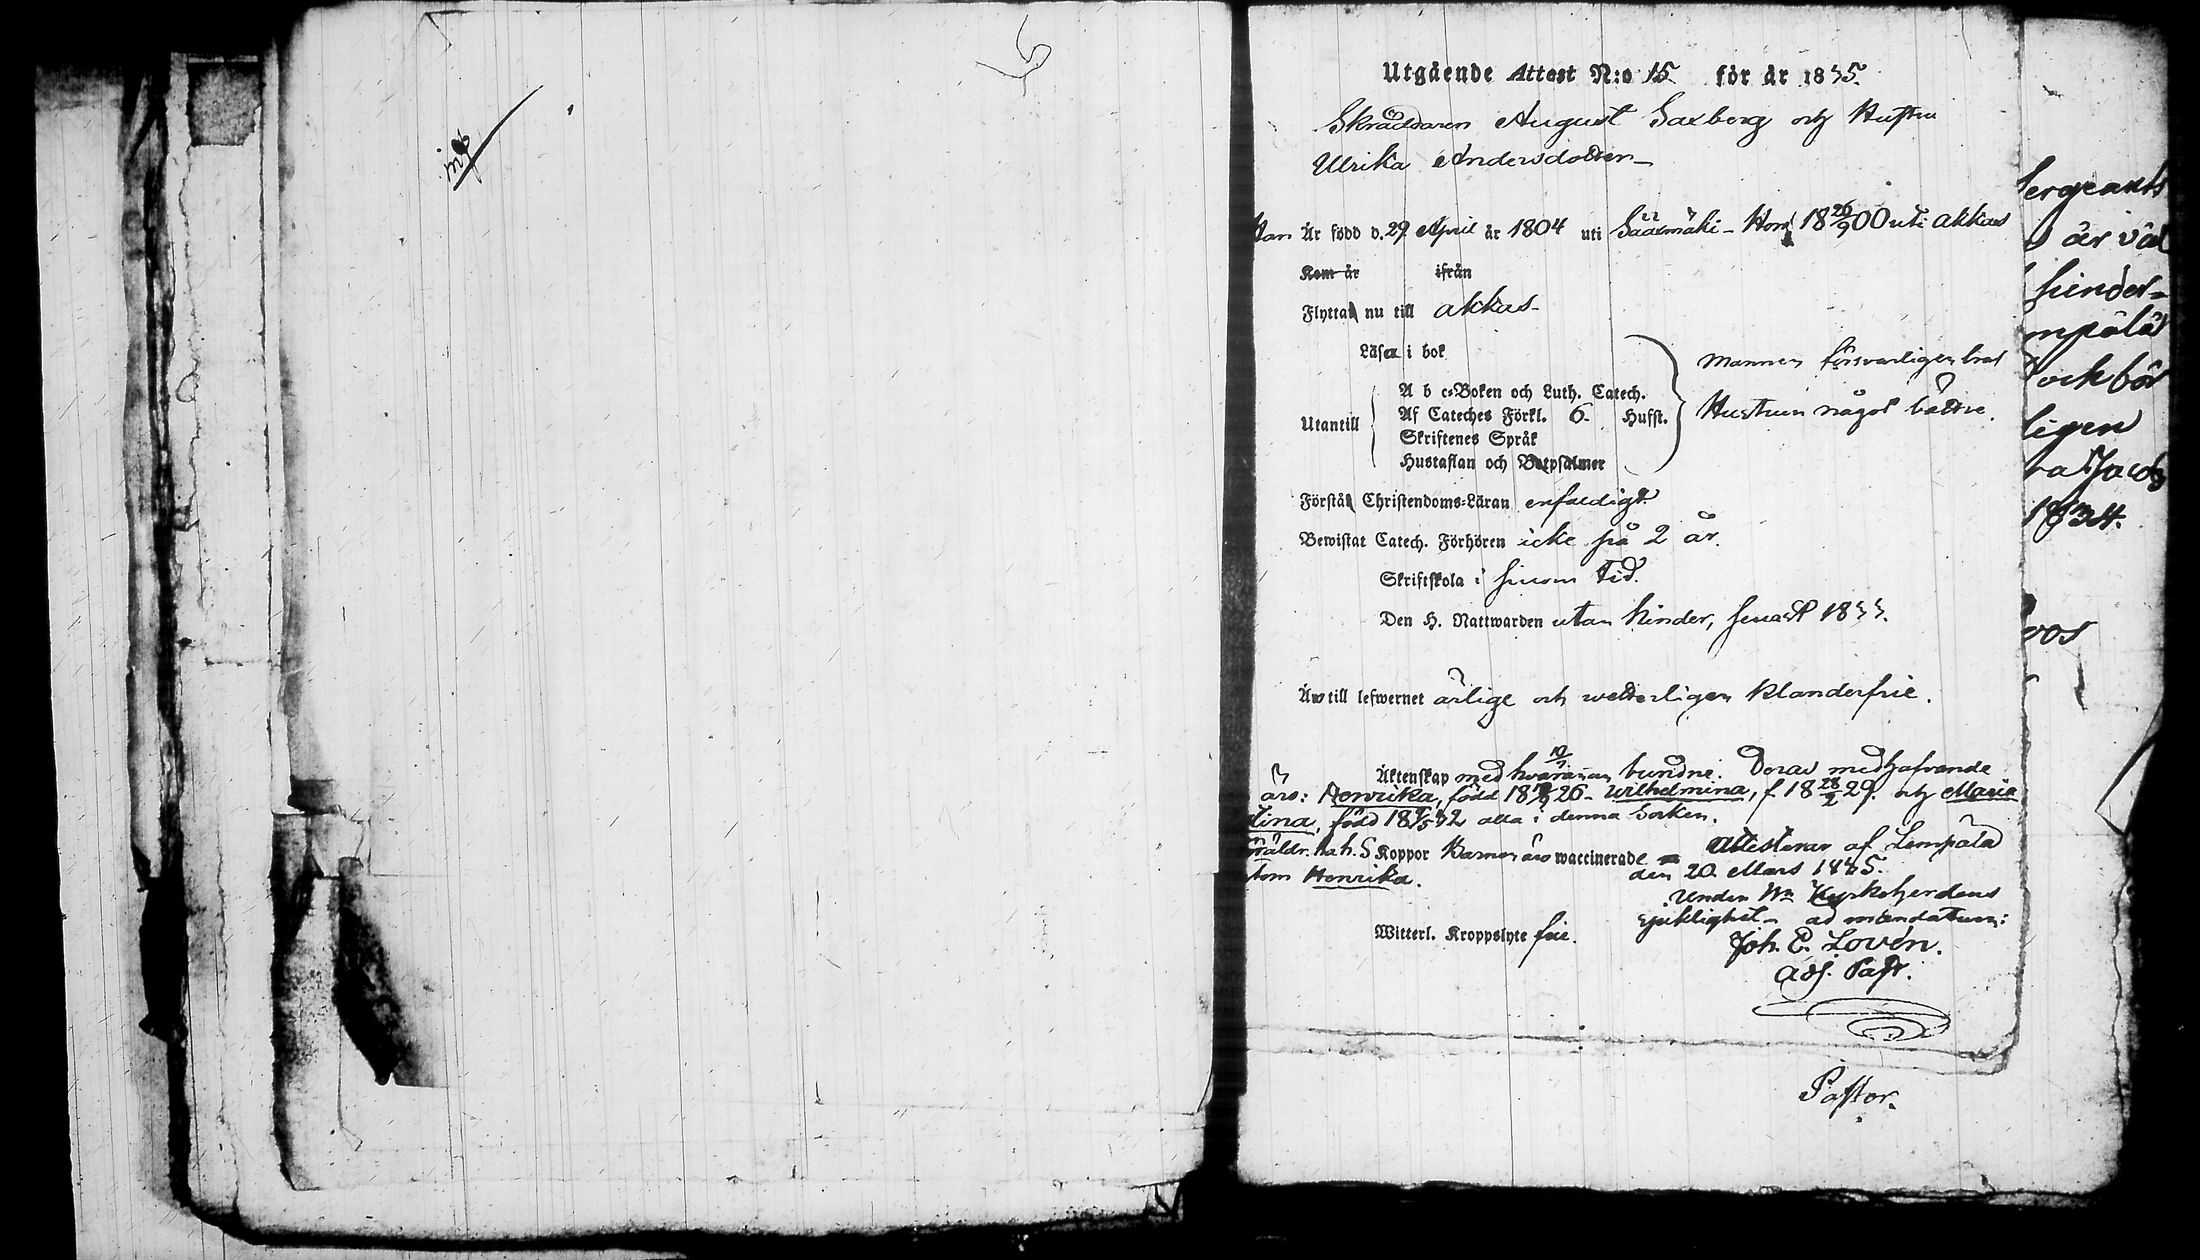 Utgående Attest N:o 15. för år 1835.
Skräddaren August Saxberg och Hustru
Ulrika Andersdotter
Han Är född d. 29 April år 1804 uti Sääxmäki - Hon 18 26/9 00 uti Akkas
Kom år ifrån
Flytta nu till Akkas
Läsa i bok
Mannen försvarligen
Utantill
A b c-Boken och Luth. Catech.
Af Cateches Förkl. 6. Hufst.
Hustrun något bättre.
Skriftenes Språk
Hustaflan och Botpsalmer
Förstå Christendoms-Läran enfaldigt.
Bewistat Catech. Förhören icke på 2 år.
Skriftskola i sinom tid.
Den H. Nattwarden utan hinder, senast 1833.
Äro till lefwernet ärlige och wetterligen klanderfrie.
Äktenskap med hvarannan bundne. Deras medhafvande
äro: Henrika, född 18 26 - Wilhelmina, f. 18 28/2 29. och Maria
Stina, född 18 32 alla i denna Socken.
Föräldr. hafv. S Koppor Barnen äro waccinerade Attesterar af Lempälä
utom Henrika. den 20 Mars 1835.
Under Hr Kyrkoherdens
sjuklighet - ad mandatum:
Witterl. Kroppslyte frie.
Joh. E. Lovén.
Adj. Past.
Sergeants
är väl
hinder-
mpälä
och bör
ligen
1834.
Pastor.